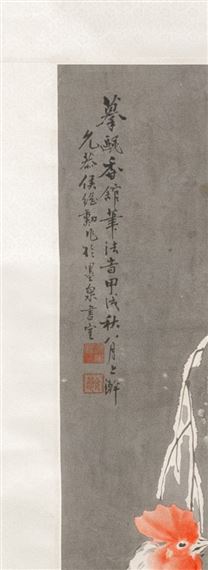 摹甌香館筆法昔甲戌秋八月上澣
允恭侯繼勳作於墨泉書室